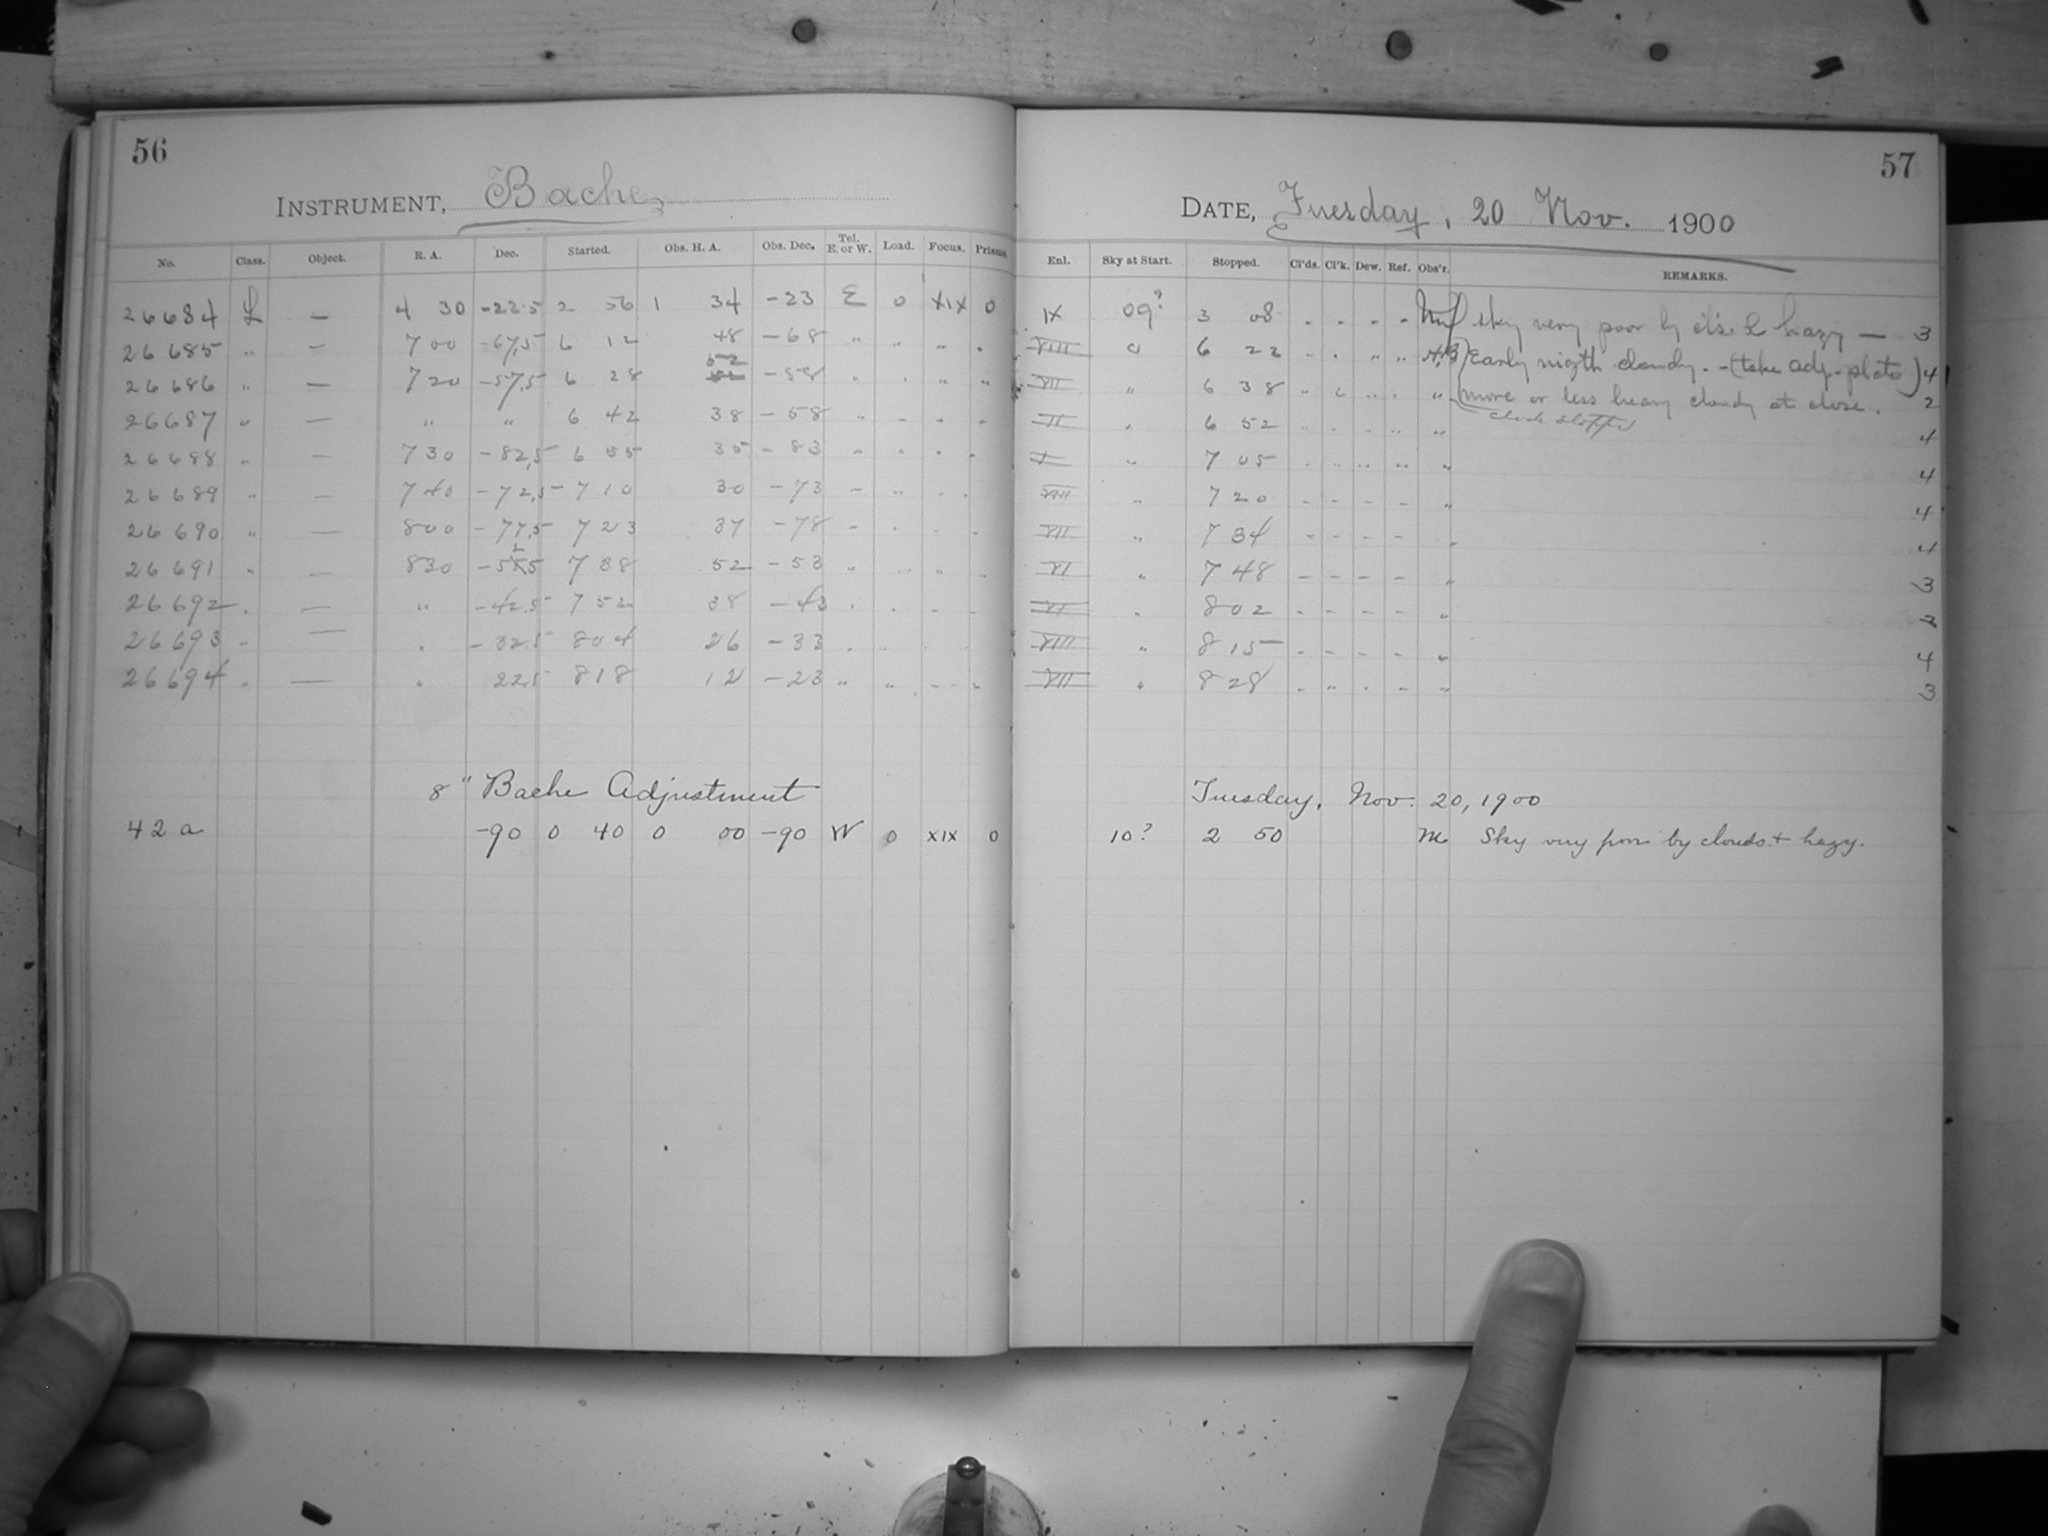 56
INSTRUMENT, Bache
No. Class. Object. R. A. Dec. Started. Obs. H. A. Obs. Dec. Tel. E. or W. Load. Focus. Prisms.
26684 L — 4 30 -22.5 2 56 1 34 -23 E 0 XIX 0
26685 " — 7 00 -67.5 6 12 48 -68 " " " "
26686 " — 7 20 -57.5 6 28 52 -58 " " " "
26687 " — " " 6 42 38 -58 " " " "
26688 " — 7 30 -82.5 6 55 35 -83 " " " "
26689 " — 7 40 -72.5 7 10 30 -73 - " " "
26690 " — 8 00 -77.5 7 23 37 -78 - " " "
26691 " — 8 30 -52.5 7 38 52 -53 " " " "
26692 " — " -42.5 7 52 38 -43 " " " "
26693 " — " -32.5 8 04 26 -33 " " " "
26694 " — " 22.5 8 18 12 -23 " " " "
8" Bache Adjustment
42a -90 0 40 0 00 -90 W 0 XIX 0
57
DATE, Tuesday, 20 Nov. 1900
Enl. Sky at Start. Stopped. Cl'ds. Cl'k. Dew. Ref. Obs'r. REMARKS.
IX 09? 3 08 - - - - sky very poor by cl's. & hazy — 3
VIII " 6 22 " " " " Early nigth cloudy. - (take adj. plate) 4
VII " 6 38 " " " " " more or less heavy cloudy at close. 2
II " 6 52 " " " " " clock stopped 4
X " 7 05 " " " " " 4
VIII " 7 20 - - - - " 4
VII " 7 34 - - - - " 4
VI " 7 48 - - - - " 3
VI " 8 02 - - - - " 3
VIII " 8 15 - - - - " 4
VII " 8 28 " " " " " 3
Tuesday, Nov. 20, 1900
10? 2 50 M Sky very poor by clouds & hazy.